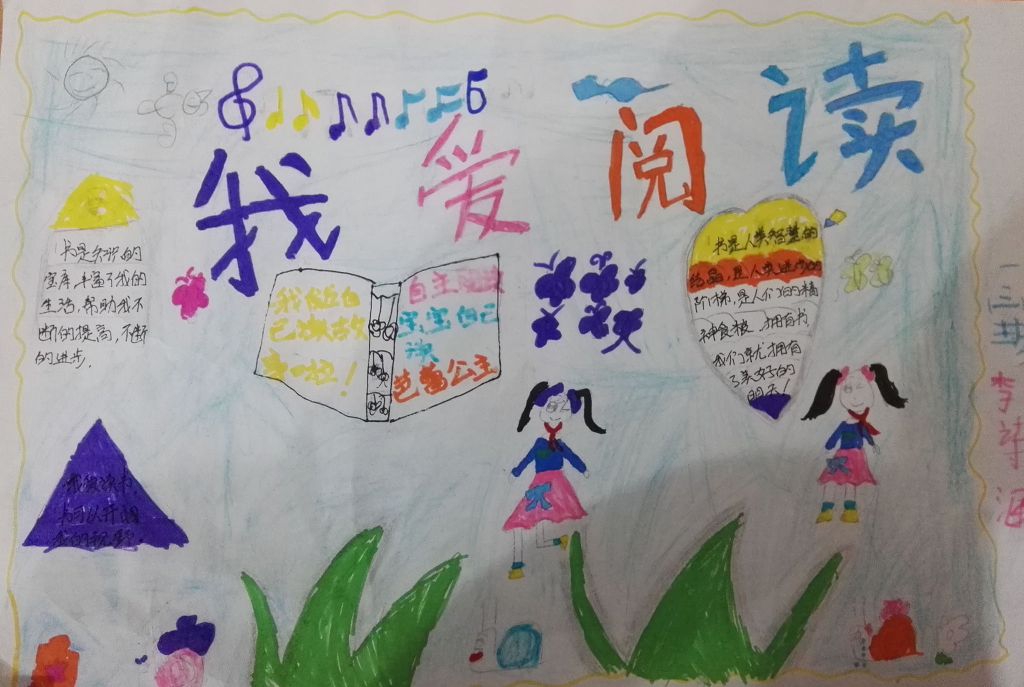 我爱阅读
书是知识的
宝库,丰富了我的
生活,帮助我不
断的提高,不断
的进步。
我能自
己读故
事啦!
自主阅读
宝宝自己
读
芭蕾公主
书是人类智慧的
结晶,是人类进步的
阶梯,是人们的精
神食粮,拥有书
我们就拥有
了美好的
明天!
我爱读书,
书可以开阔